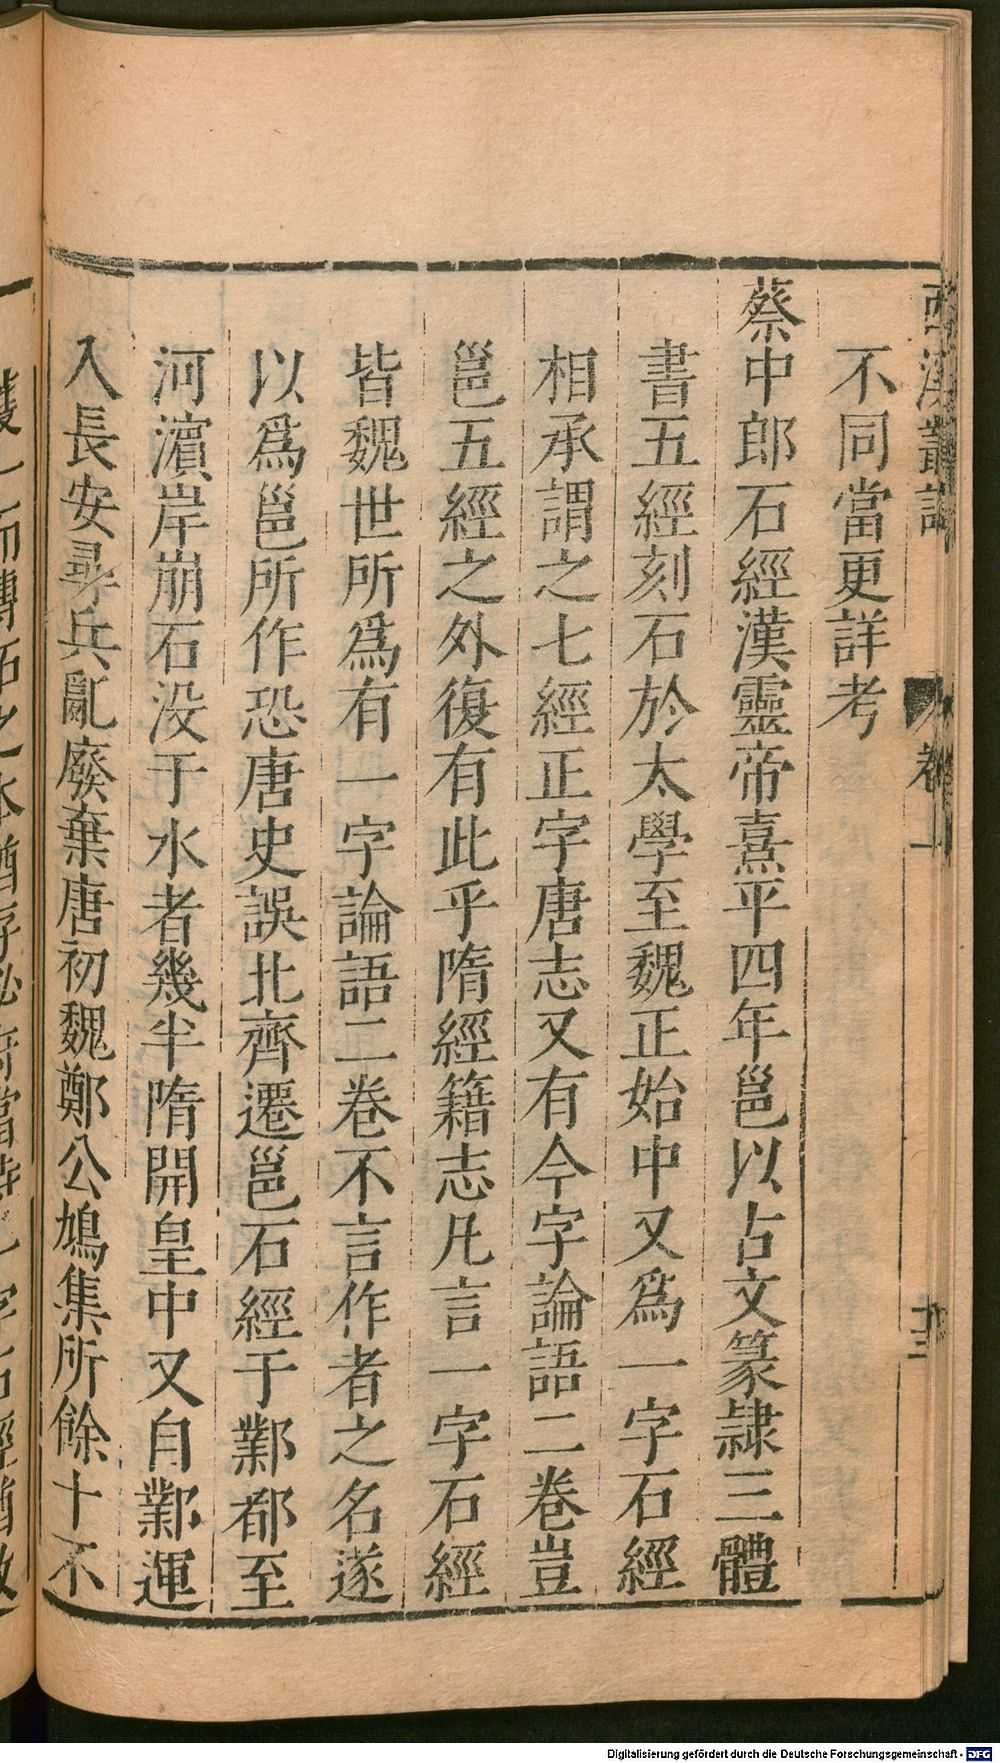 西溪叢語
卷一
不同當更詳考
蔡中郎石經漢靈帝熹平四年邕以古文篆隷三體
書五經刻石於太學至魏正始中又爲一字石經
相承謂之七經正字唐志又有今字論語二卷豈
邕五經之外復有此乎隋經籍志凡言一字石經
皆魏世所爲有一字論語二卷不言作者之名遂
以爲邕所作恐唐史誤北齊遷邕石經于鄴都至
河濵岸崩石没于水者幾半隋開皇中又自鄴運
入長安尋兵亂廢棄唐初魏鄭公鳩集所餘十不
Digitalisierung gefördert durch die Deutsche Forschungsgemeinschaft - DFG